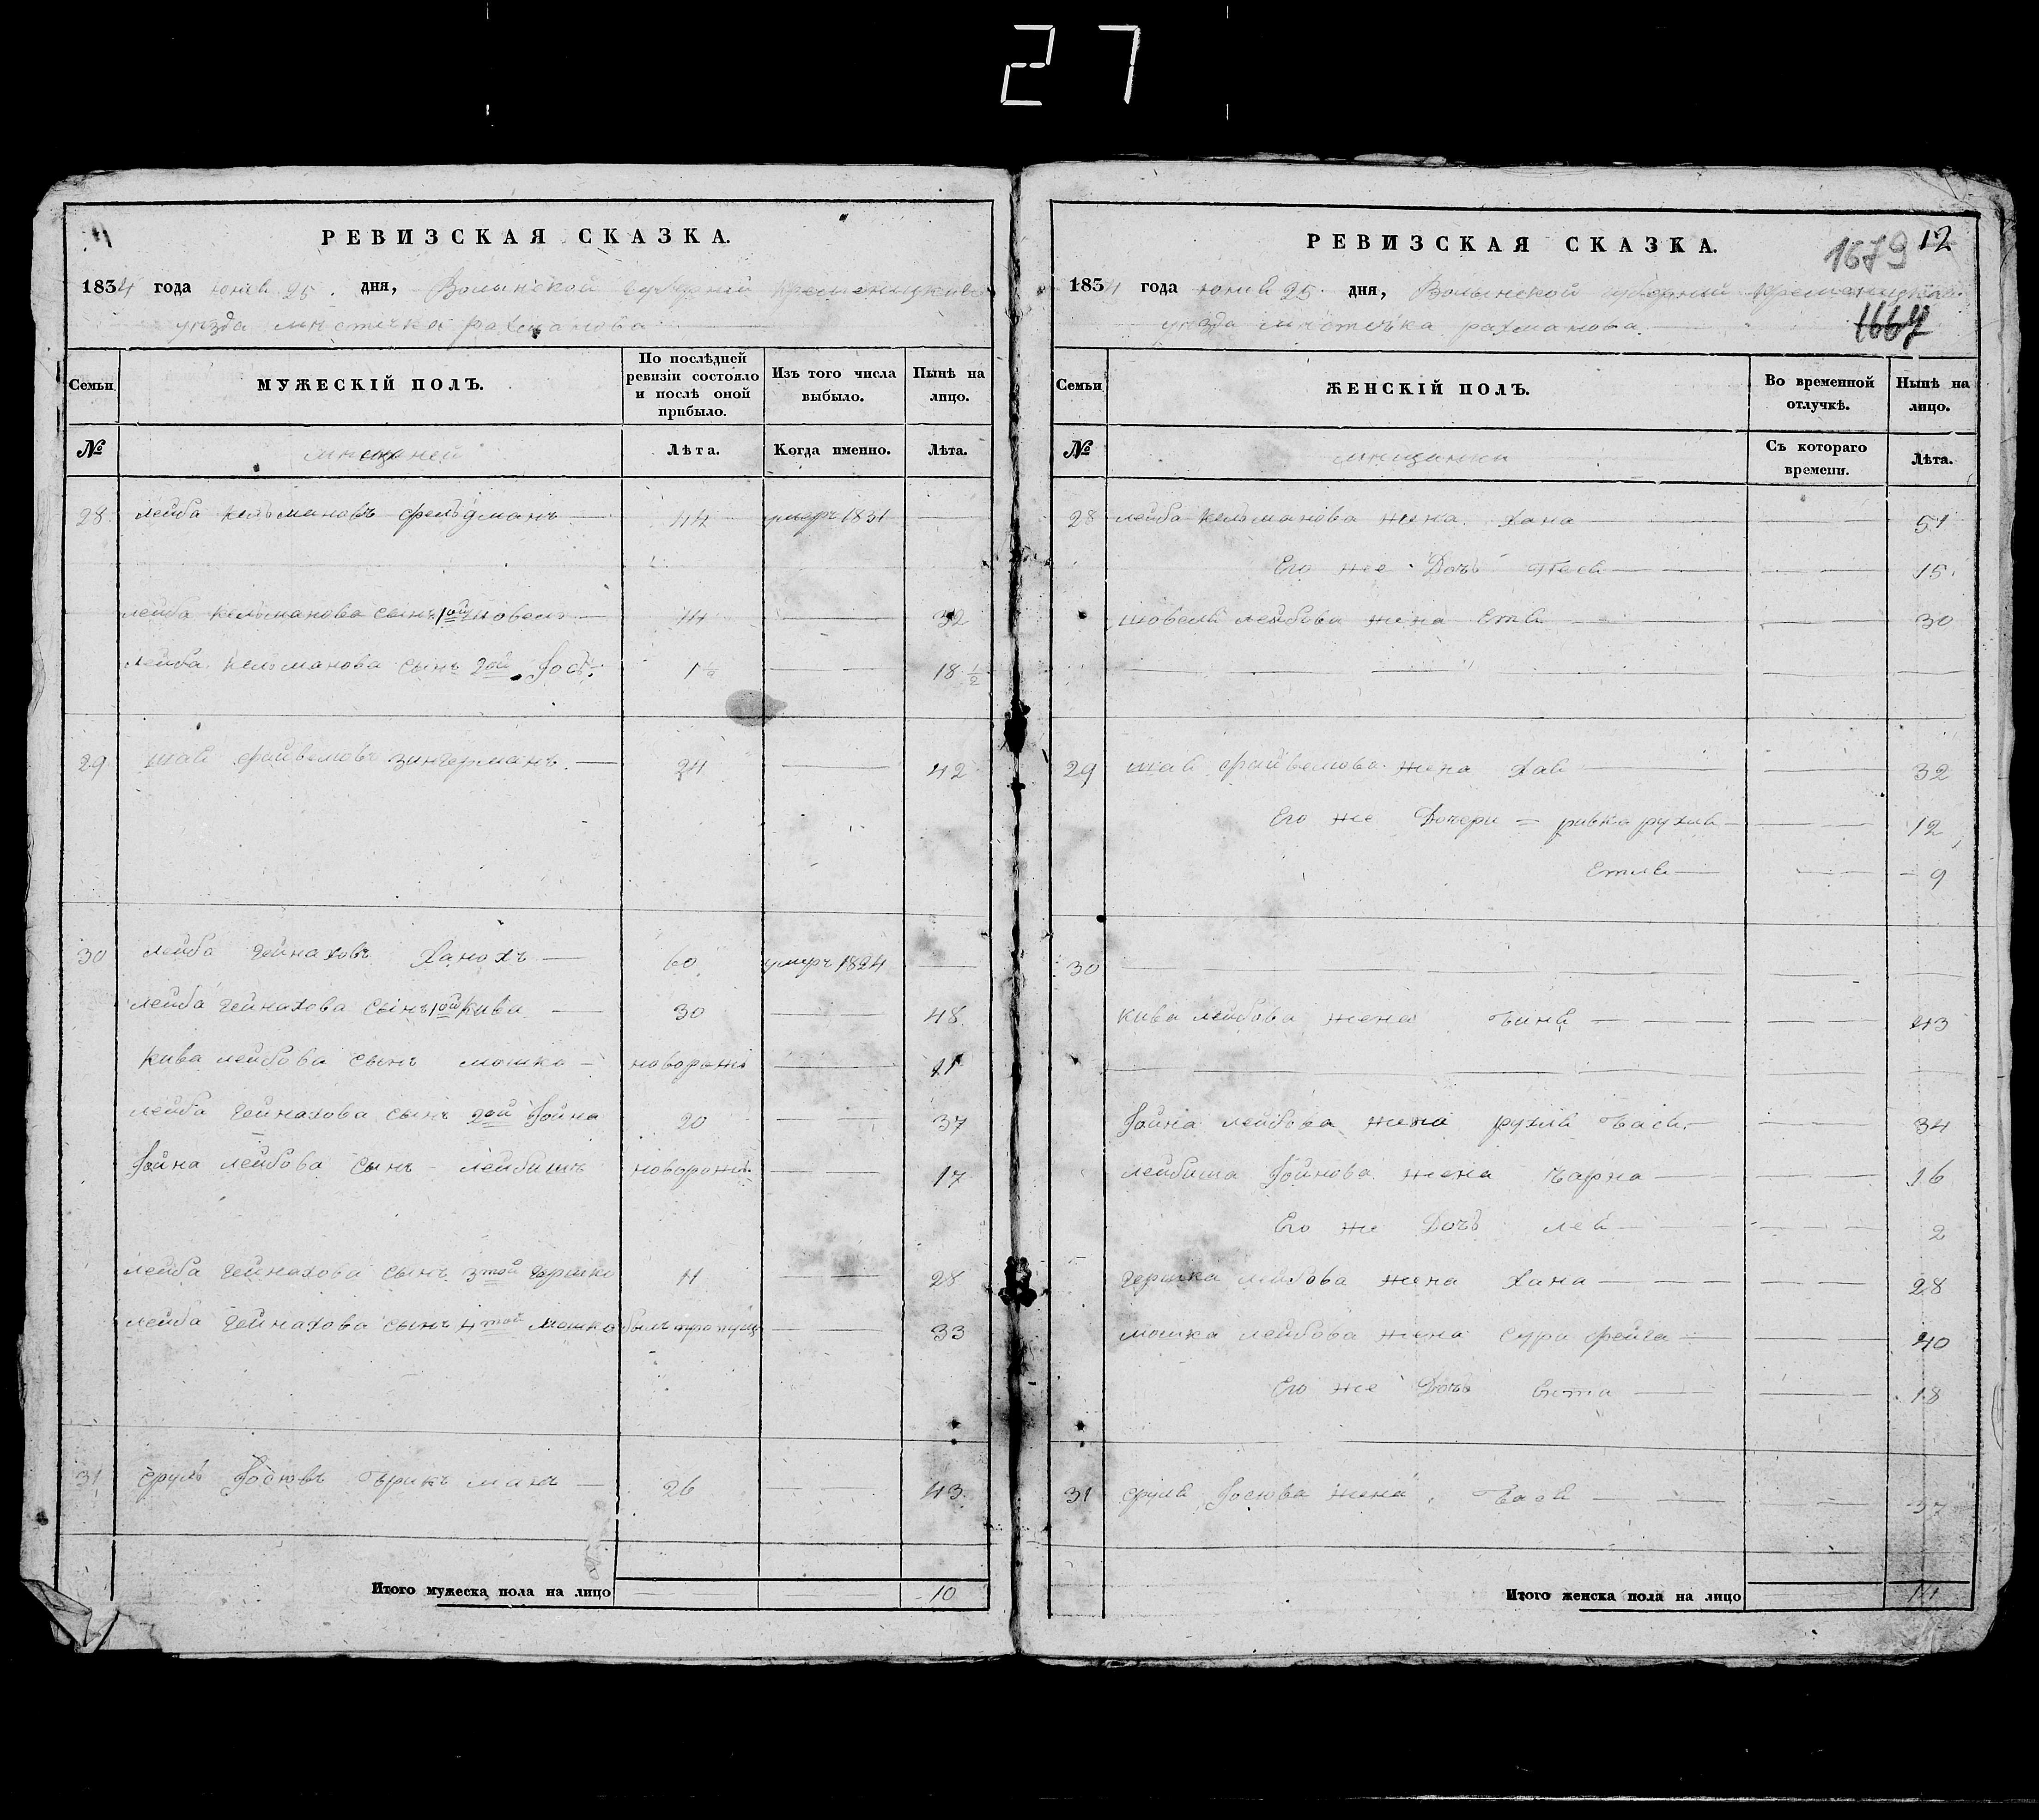 27
11
РЕВИЗСКАЯ СКАЗКА.
1834 года юнӕ 25. дня, Волынской губерний Кременицкаго
уезда местечка рахманова
Семьи
МУЖЕСКІЙ ПОЛЪ.
По послѣдней ревизіи состояло и послѣ оной прибыло.
Изъ того числа выбыло.
Нынѣ на лицо.
№
Лѣта.
Когда именно.
Лѣта.
28 лейба кельмановъ фельдманъ — 44 умеръ 1831 —
лейба кельманова сынъ 1ой шовель — 14 — 32
лейба кельманова сынъ 2ой 1½ — 18 ½
29 шаӕ файвелювъ зингерманъ — 24 — 42
30 лейба гейнаховъ Ханохъ — 60 умеръ 1824 —
лейба гейнахова сынъ 1ой кива — 30 — 48
кива лейбова сынъ мошко — новорожд — 21
лейба гейнахова сынъ 2ой Іойна 20 — 37
Іойна лейбова сынъ лейбишъ новорожд — 17
лейба гейнахова сынъ 3той гершко 11 — 28
лейба гейнахова сынъ 4той мошко былъ пропущ — 33
31 сруль Іосювъ — 26 — 43
Итого мужеска пола на лицо — — 10
РЕВИЗСКАЯ СКАЗКА.
1679 12
1834 года юнӕ 25. дня, Волынской губерний Кременицкаго
уезда местечка рахманова.
1667
Семьи
ЖЕНСКІЙ ПОЛЪ.
Во временной отлучкѣ.
Нынѣ на лицо.
№
мещанки
Съ котораго времени.
Лѣта.
28 лейба кельманова жена Хана — — 51
Его же Дочь — — 15
шовелӕ лейбова жена Етӕ — — 30
29 шаӕ файвелюва жена Хаӕ — — 32
Его же Дочери = ривка рухлӕ — — 12
Етлӕ — — 9
30 — — —
кива лейбова жена — — 43
Іойна лейбова жена рухлӕ басӕ — — 34
лейбиша Іойнова жена чарна — — 16
Его же Дочь леӕ — — 2
гершка лейбова жена Хана — — 28
мошка лейбова жена сура фейга — — 40
Его же Дочь — — 18
31 срулӕ Іосюва жена басӕ — — 37
Итого женска пола на лицо